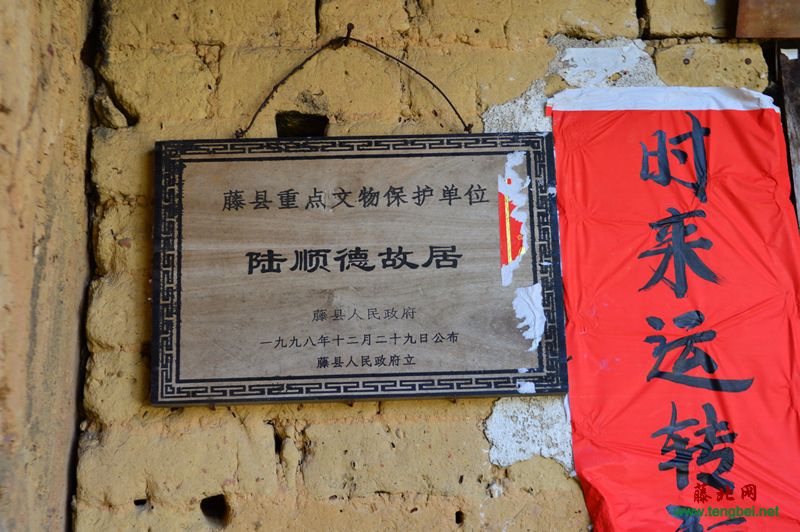 藤县重点文物保护单位
陆顺德故居
藤县人民政府
一九九八年十二月二十九日公布
藤县人民政府立
时来运转
藤北网
www.tengbei.net